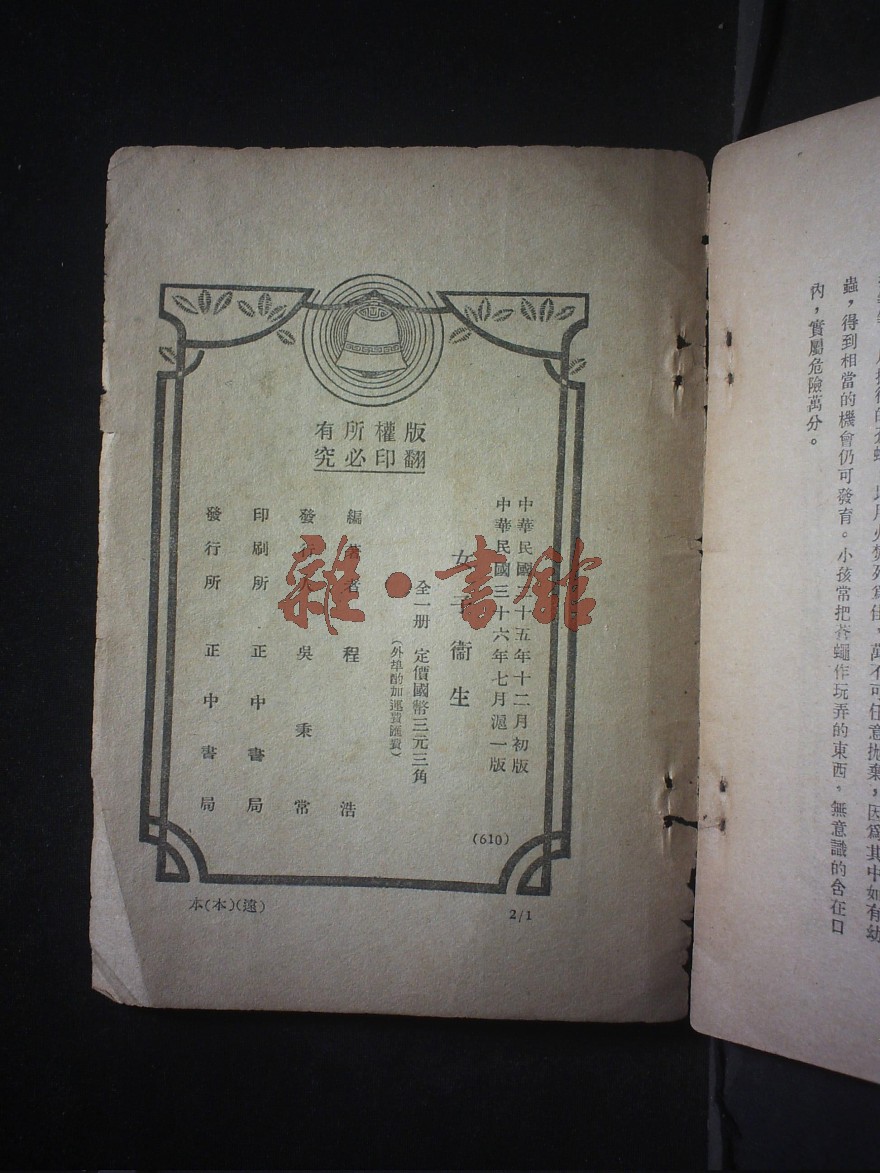 蟲，得到相當的機會仍可發育。小孩常把蒼蠅作玩弄的東西，無意識的含在口
內，實屬危險萬分。
版權所有
翻印必究
中華民國 十五年十二月初版
中華民國三十六年七月滬一版
女子衞生
全一册 定價國幣三元三角
（外埠酌加運費匯費）
編著者 程浩
發行人 吳秉常
印刷所 正中書局
發行所 正中書局
(610)
本(本)(遠)
2/1
雜·書館